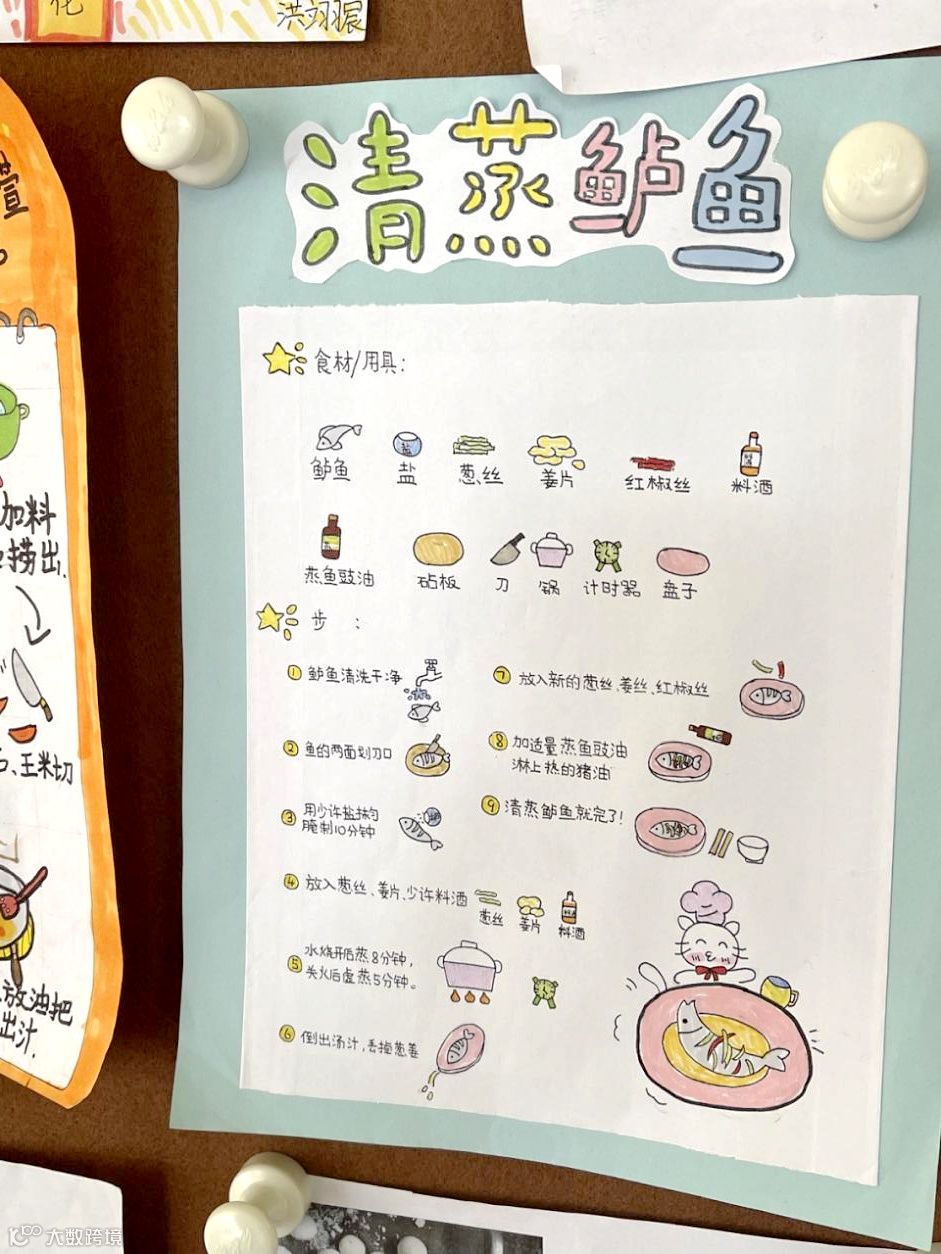 化
洪翊宸
清蒸鲈鱼
食材/用具:
鲈鱼 盐 葱丝 姜片 红椒丝 料酒
盐
蒸鱼豉油 砧板 刀 锅 计时器 盘子
步 :
① 鲈鱼清洗干净
② 鱼的两面划刀口
③ 用少许盐抹匀
腌制10分钟
④ 放入葱丝、姜片、少许料酒
葱丝 姜片 料酒
⑤ 水烧开后蒸8分钟,
关火后虚蒸5分钟。
⑥ 倒出汤汁,丢掉葱姜
⑦ 放入新的葱丝、姜丝、红椒丝
⑧ 加适量蒸鱼豉油
淋上热的猪油
⑨ 清蒸鲈鱼就完了!
加料
捞出.
、玉米切
放油把
出汁.
大数跨境